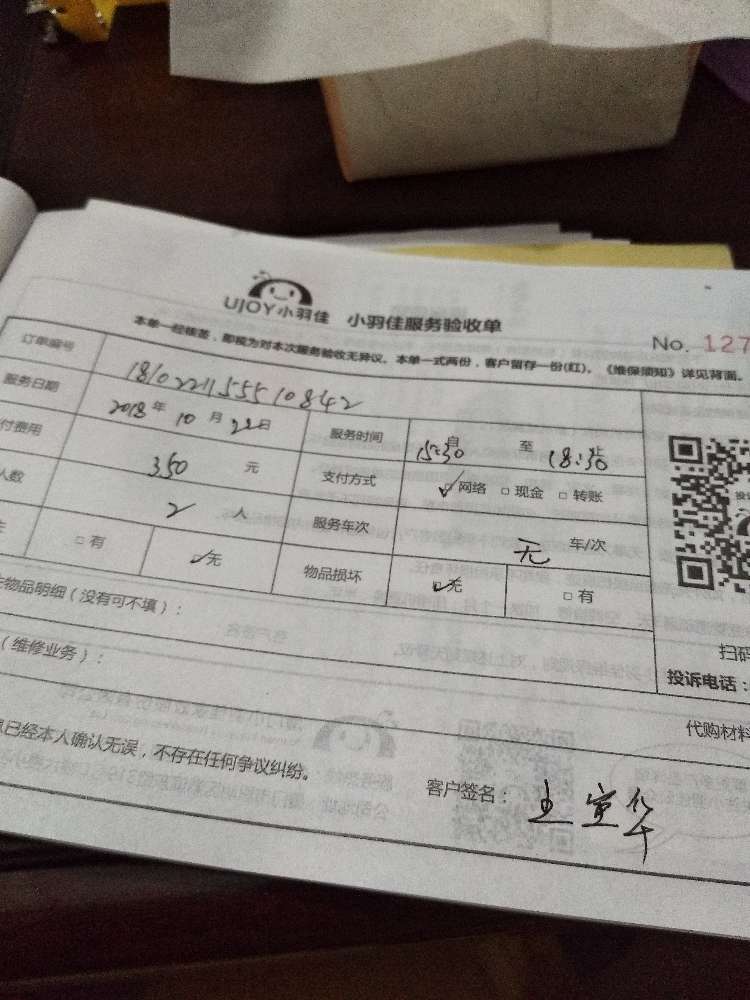 UJOY小羽佳 小羽佳服务验收单
No. 127
本单一经核签，即视为对本次服务验收无异议。本单一式两份，客户留存一份(红)。《维保须知》详见背面。
订单编号 18102211555510842
服务日期 2018年10月22日 服务时间 15:30 自 至 18:30 止
付费用 350 元 支付方式 ☑网络 □现金 □转账
人数 2 人 服务车次 无 车/次
□有 ☑无 物品损坏 ☑无 □有
物品明细（没有可不填）：
（维修业务）：
扫码
投诉电话：
代购材料
已经本人确认无误，不存在任何争议纠纷。
客户签名：